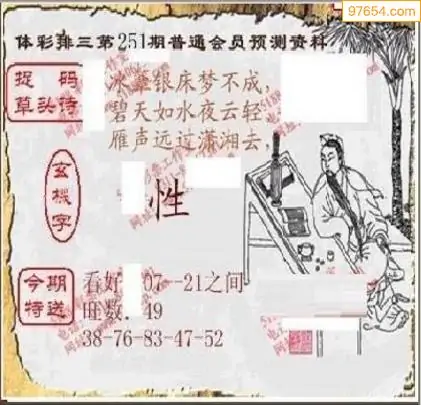 97654.com
体彩排三第251期普通会员预测资料
捉码
草头诗
冰簟银床梦不成,
碧天如水夜云轻
雁声远过潇湘去,
玄機字
性
今期
特送
看好 07--21之间
旺数. 49
38-76-83-47-52